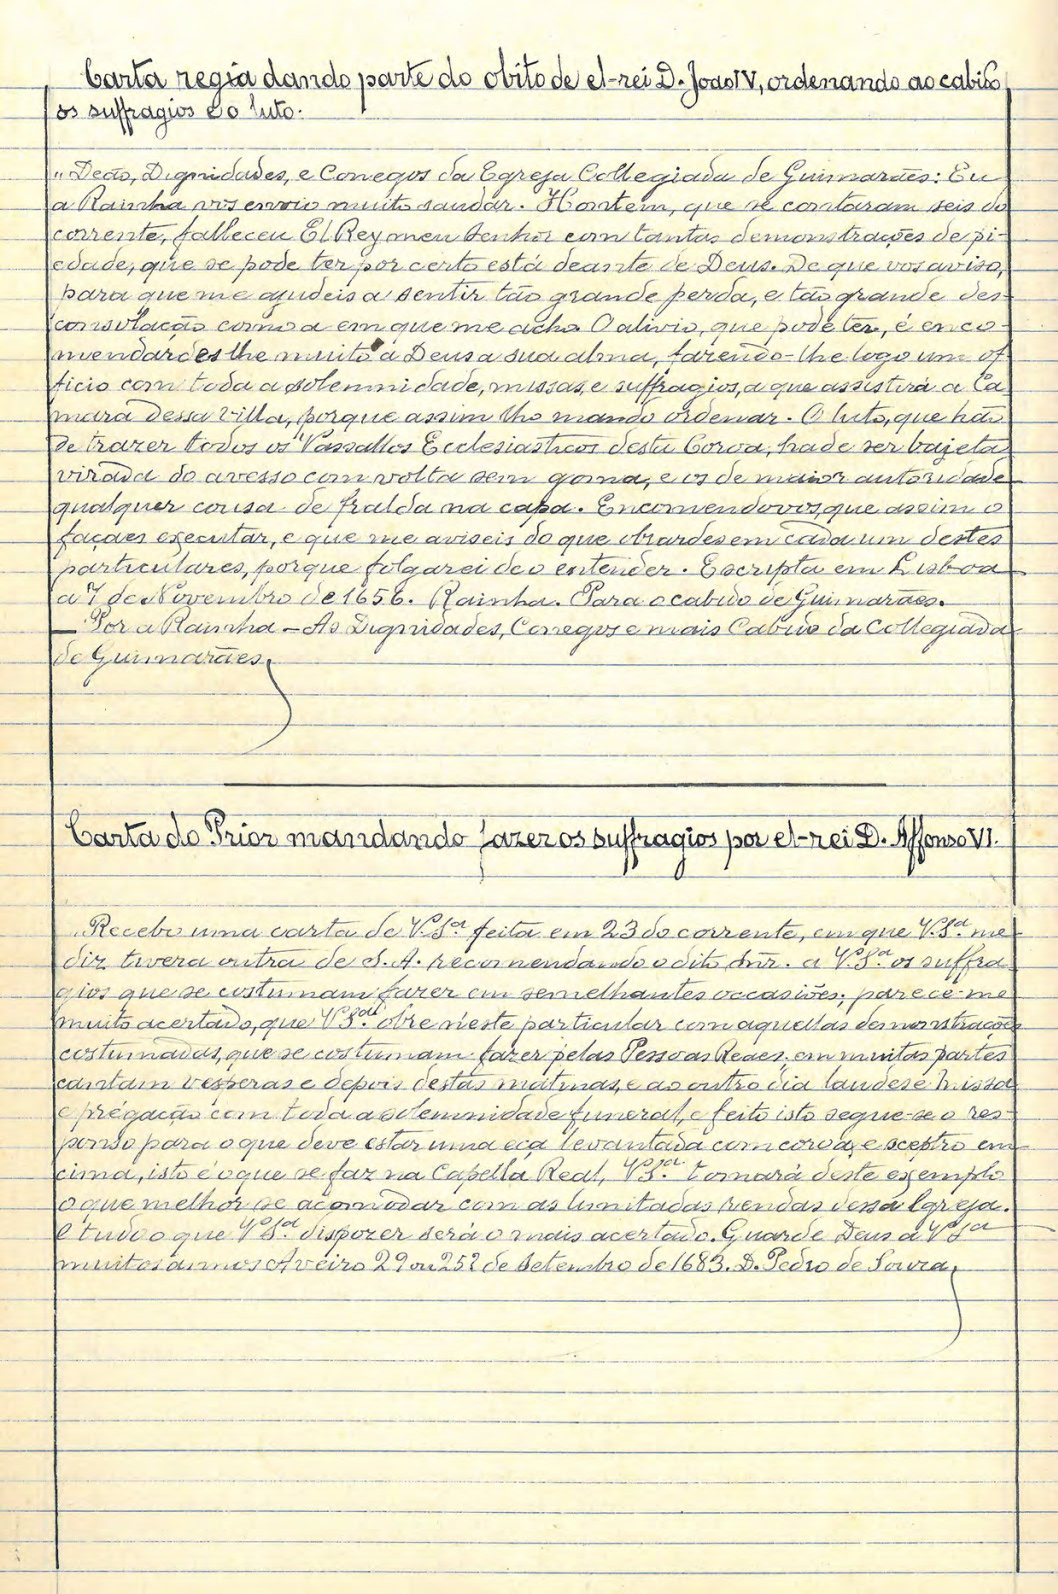 Carta regia dando parte do obito de el-rei D. João IV, ordenando ao cabido
os suffragios e o luto.
"Deão, Dignidades, e Conegos da Egreja Collegiada de Guimarães: Eu
a Rainha vos envio muito saudar. Hontem, que se contaram seis do
corrente, falleceu El Rey meu Senhor com tantas demonstrações de pi-
edade, que se pode ter por certo está deante de Deus. De que vos aviso,
para que me ajudeis a sentir tão grande perda, e tão grande des-
consolação como a em que me acho O alivio, que pode ter, é enco-
mendardes lhe muito a Deus a sua alma, fazendo-lhe logo um of
ficio com toda a solemnidade, missas, e suffragios, a que assistirá a Ca
mara dessa Villa, porque assim lho mando ordenar. O luto, que hão
de trazer todos os Vassallos Ecclesiasticos desta Coroa, hade ser bajeta
virada do avesso com volta sem goma, e os de maior autoridade
qualquer cousa de fralda na capa. Encomendovos, que assim o
façaes executar, e que me aviseis do que obrardes em cada um destes
particulares, porque folgarei de o entender. Escripta em Lisboa
a 7 de Novembro de 1656. Rainha. Para o cabido de Guimarães.
— Por a Rainha – As Dignidades, Conegos e mais Cabido da Collegiada
de Guimarães,
Carta do Prior mandando fazer os suffragios por el-rei D. Affonso VI.
"Recebo uma carta de V.Sª feita em 23 do corrente, em que V.Sª me
diz tivera outra de S. A. recomendando o dito Snr. a V.Sª os suffra
gios que se costumam fazer em semelhantes occasiões; parece-me
muito acertado, que V.Sª obre n'este particular com aquellas demonstrações
costumadas, que se costumam fazer pelas Pessoas Reaes; em muitas partes
cantam vesperas e depois destas matinas, e ao outro dia laudes e missa
e prégação com toda a solemnidade funeral, e feito isto segue-se o res-
ponso para o que deve estar uma eça levantada com coroa, e sceptro em
cima, isto é o que se faz na Capella Real, V.Sª tomará deste exemplo
o que melhor se acomodar com as limitadas rendas dessa Egreja.
E tudo o que V.Sª dispozer será o mais acertado. Guarde Deus a V.Sª
muitos annos Aveiro 29 ou 25? de Setembro de 1683. D. Pedro de Sousa,